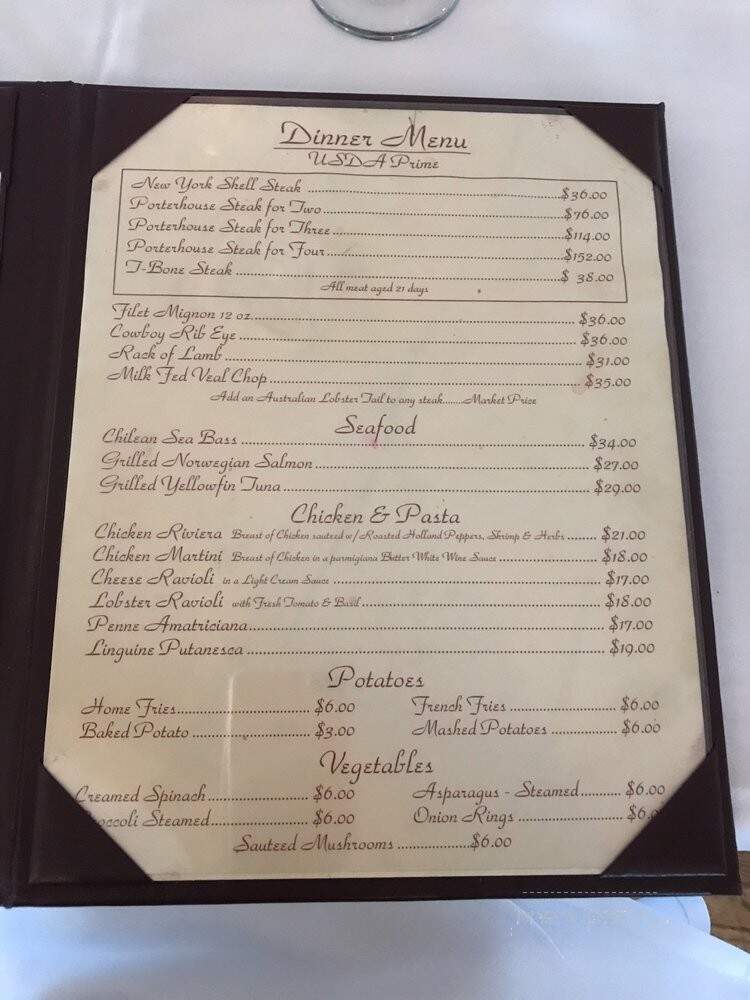 Dinner Menu
USDA Prime
New York Shell Steak ........ $36.00
Porterhouse Steak for Two ........ $76.00
Porterhouse Steak for Three ........ $114.00
Porterhouse Steak for Four ........ $152.00
T-Bone Steak ........ $ 38.00
All meat aged 21 days
Filet Mignon 12 oz. ........ $36.00
Cowboy Rib Eye ........ $36.00
Rack of Lamb ........ $31.00
Milk Fed Veal Chop ........ $35.00
Add an Australian Lobster Tail to any steak.......Market Price
Seafood
Chilean Sea Bass ........ $34.00
Grilled Norwegian Salmon ........ $27.00
Grilled Yellowfin Tuna ........ $29.00
Chicken & Pasta
Chicken Riviera Breast of Chicken sauteed w/ Roasted Holland Peppers, Shrimp & Herbs ....... $21.00
Chicken Martini Breast of Chicken in a parmigiana Butter White Wine Sauce ........ $18.00
Cheese Ravioli in a Light Cream Sauce ........ $17.00
Lobster Ravioli with Fresh Tomato & Basil ........ $18.00
Penne Amatriciana ........ $17.00
Linguine Putanesca ........ $19.00
Potatoes
Home Fries ........ $6.00 French Fries ........ $6.00
Baked Potato ........ $3.00 Mashed Potatoes ........ $6.00
Vegetables
Creamed Spinach ........ $6.00 Asparagus - Steamed ........ $6.00
occoli Steamed ........ $6.00 Onion Rings ........ $6.0
Sauteed Mushrooms ........ $6.00